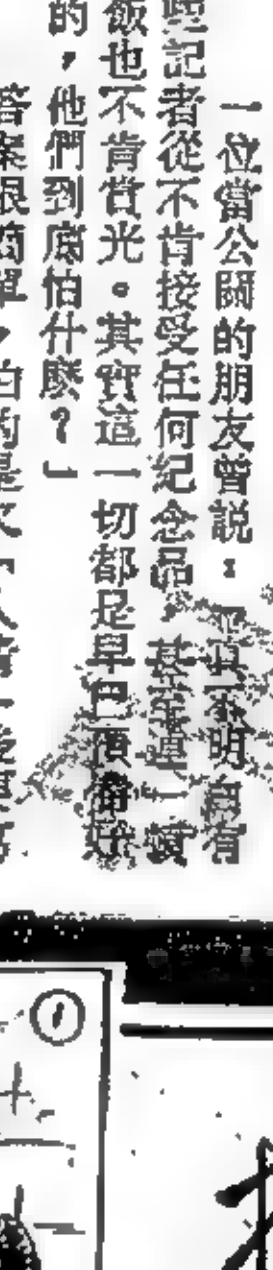 一位當公關的朋友曾説：「真不明白有
些記者從不肯接受任何紀念品，甚至連一頓
飯也不肯賞光。其實這一切都是早已預備好
的，他們到底怕什麼？」
答案很簡單，怕的是欠「人情
①